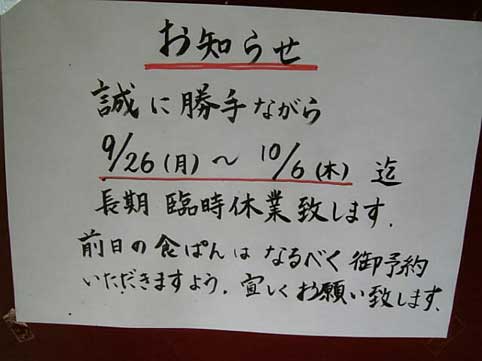 お知らせ
誠に勝手ながら
9/26(月)〜10/6(木)迄
長期臨時休業致します.
前日の食ぱんはなるべく御予約
いただきますよう.宜しくお願い致します.